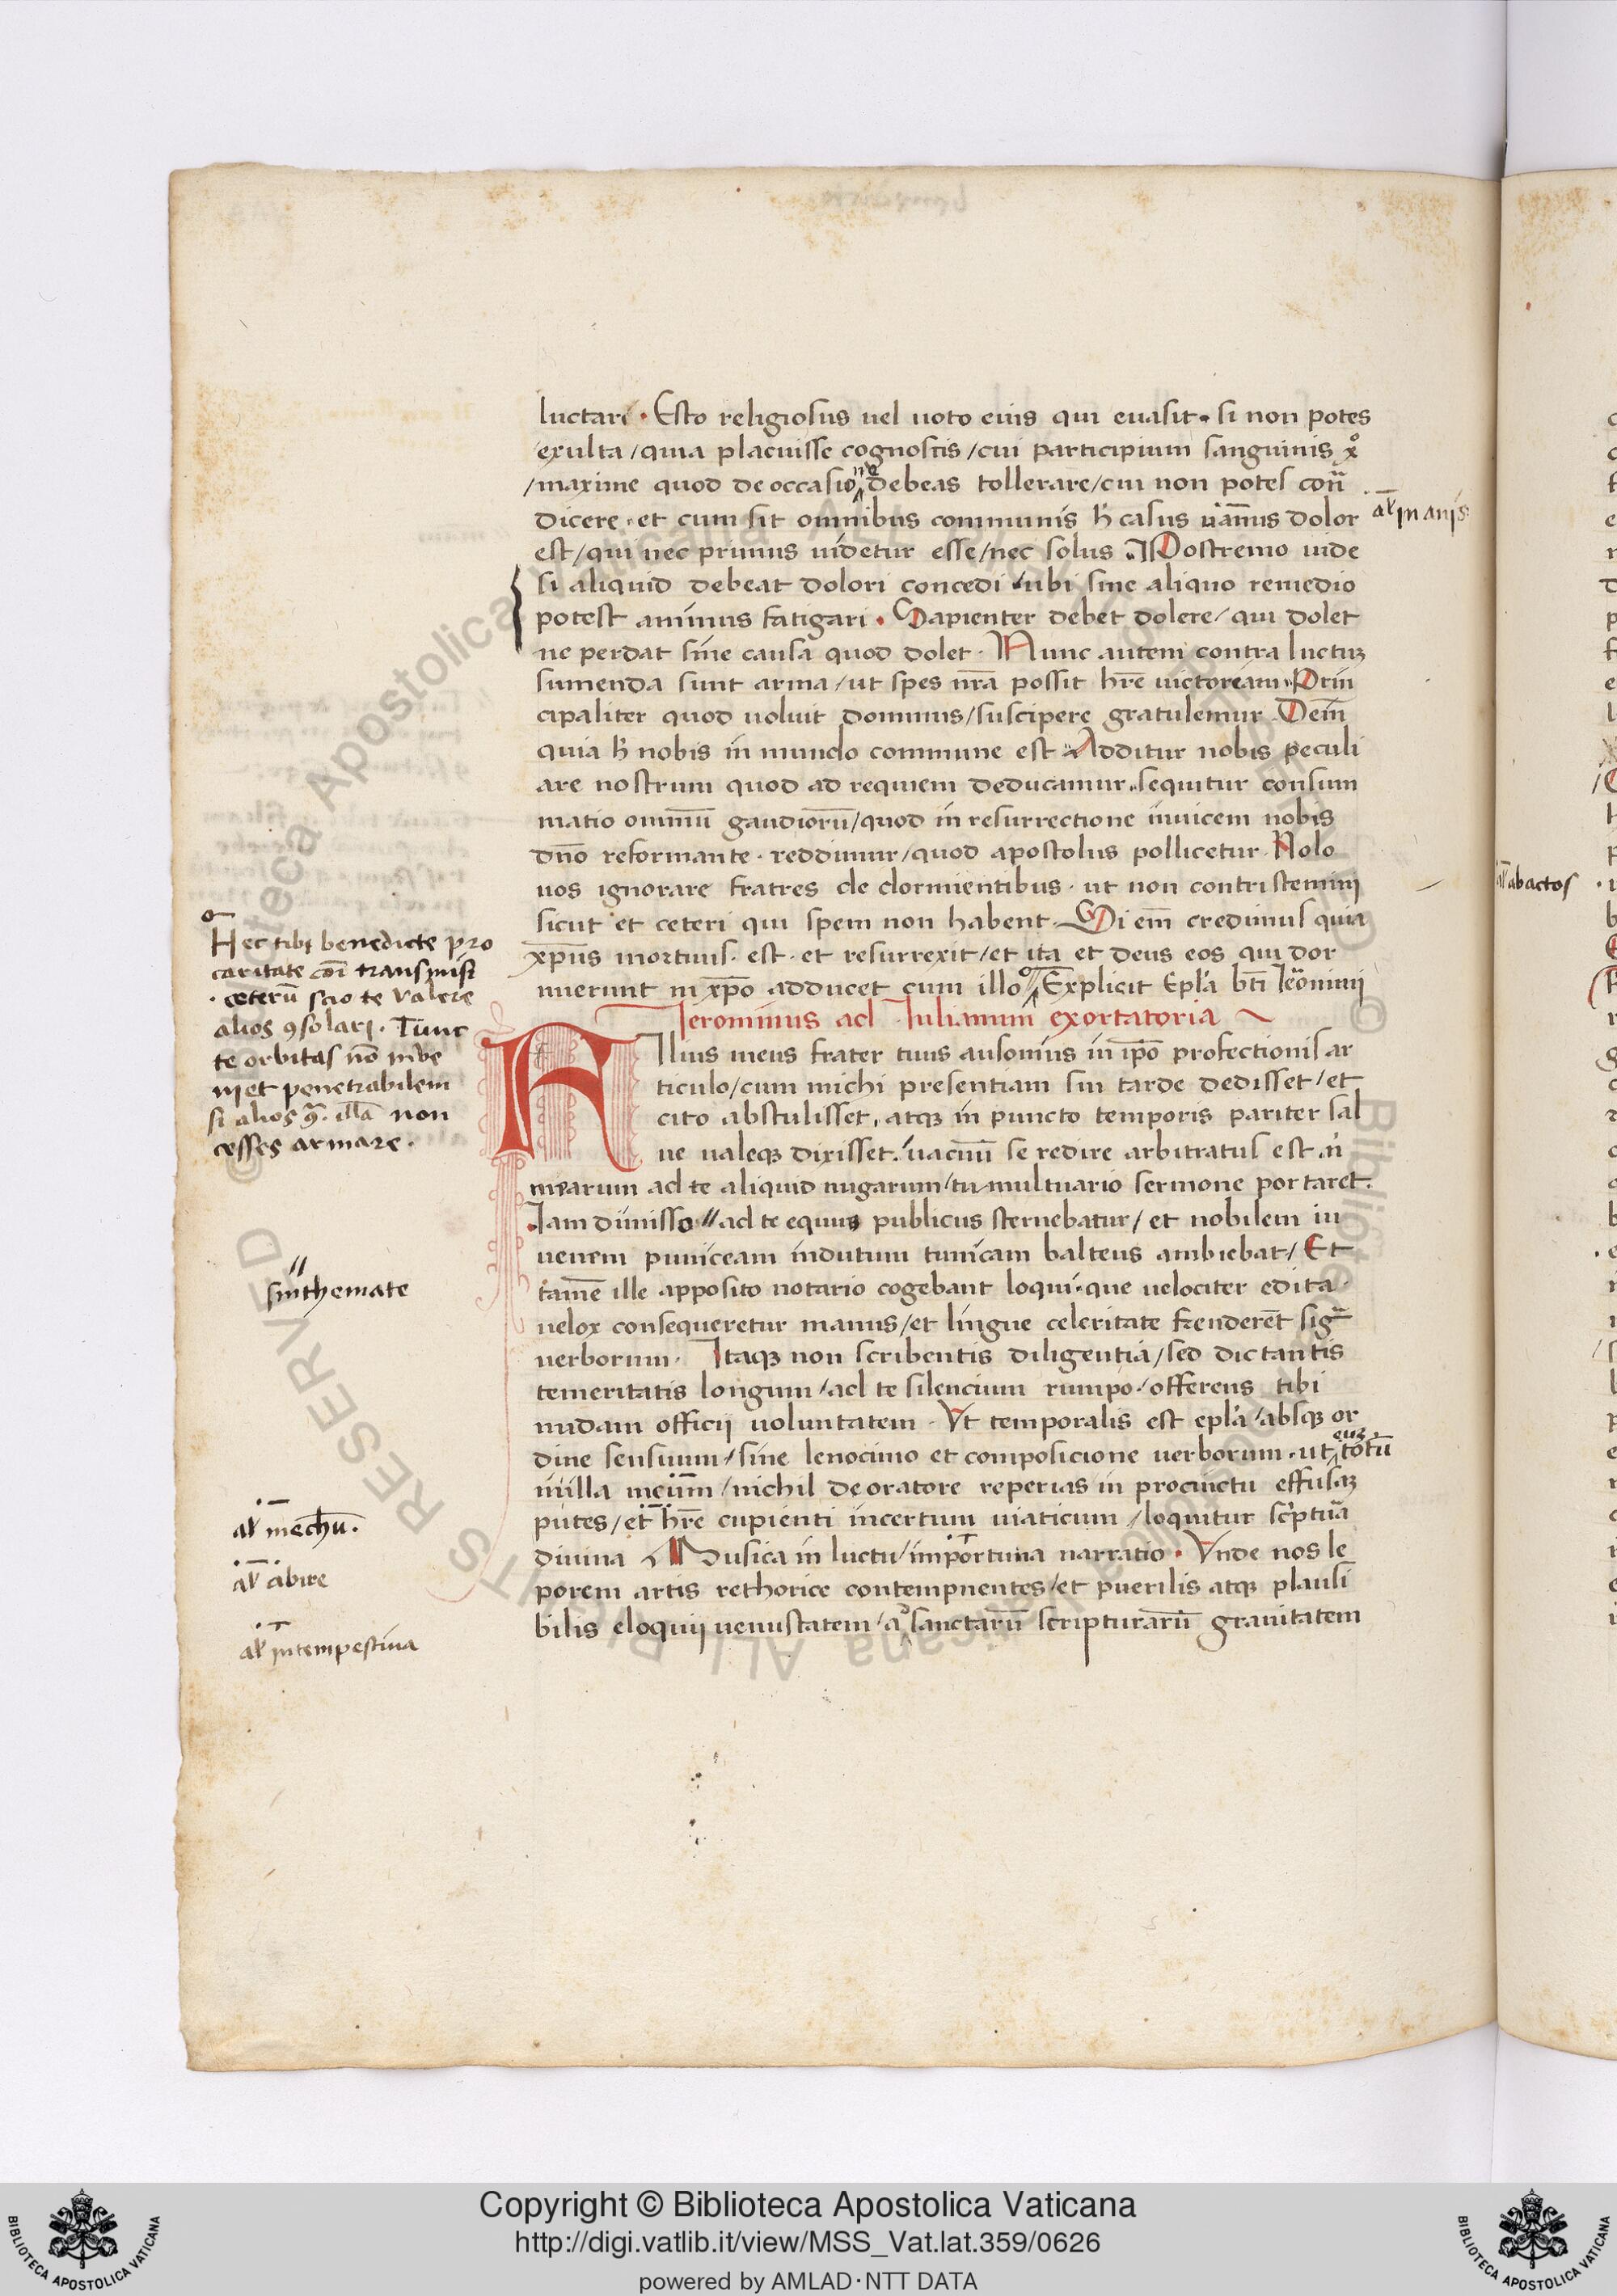 luctari · Esto religiosus uel uoto eius qui euasit · si non potes
/exulta / quia placuisse cognoscis / cui participium sanguinis xp̊
/maxime quod de occasione debeas tollerare / cui non potes cont̄
dicere · et cum sit omnibus communis h̄ casus uanus dolor
al̄ inanis
est / qui nec primus uidetur esse / nec solus · Postremo uide
si aliquid debeat dolori concedi / ubi sine aliquo remedio
potest animus fatigari · Sapienter debet dolere / qui dolet
ne perdat sine causa quod dolet · Nunc autem contra luctuz
sumenda sunt arma / ut spes nr̄a possit hr̄e uictoream · Prin
cipaliter quod uoluit dominus / suscipere gratulemur · Dein̄
quia h̄ nobis in mundo commune est · Additur nobis peculi
are nostrum quod ad requiem deducamur · sequitur consum
matio omniū gaudiorū / quod in resurrectione inuicem nobis
dn̄o reformante · reddimur / quod apostolus pollicetur · Nolo
uos ignorare fratres de dormientibus · ut non contristemini
sicut et ceteri qui spem non habent · Si em̄ credimus quia
xp̄us mortuus · est · et resurrexit / et ita et deus eos qui dor
mierunt in xp̄o adducet cum illo Explicit Epl̄a bt̄i Ieronimi
Hec tibi benedicte pro
caritate coī transmisi
· ceterū scio te valere
alios ꝯsolari · Tunc
te orbitas nō inve
niet penetrabilem
si alios ꝯ̄ · illā non
cesses armare ·
Ieronimus ad Iulianum exortatoria
Filius meus frater tuus ausonius in ip̄o profectionis ar
ticulo / cum michi presentiam sui tarde dedisset / et
cito abstulisset · atqꝫ in puncto temporis pariter sal
ue ualeqꝫ dixisset · uacuū se redire arbitratus est · n̄
mearum ad te aliquid nugarum / tumultuario sermone portaret ·
Iam dimisso // ad te equus publicus sternebatur / et nobilem iu
uenem puniceam indutum tunicam balteus ambiebat / Et
// sinthemate
tamē ille apposito notario cogebant loqui · que uelociter edita ·
uelox consequeretur manus / et lingue celeritate frenderēt sigā
uerborum · Itaqꝫ non scribentis diligentia / sed dictantis
temeritatis longum / ad te silencium rumpo · / offerens tibi
nudam officii uoluntatem · Vt temporalis est epl̄a / absqꝫ or
dine sensuum / sine lenocinio et composicione uerborum · ut euz totū
in illa meūm / nichil de oratore reperias in procinctu effusaꝫ
al̄ mechū ·
putes / et hr̄e cupienti incertum uiaticum / loquitur scr̄ptūa
al̄ abire
diuina Musica in luctu / importuna narratio · Vnde nos le
porem artis rethorice contempnentes / et puerilis atqꝫ plausi
al̄ intempestiua
bilis eloquii uenustatem / a sanctarū scripturarū grauitatem
al̄ abactos
Copyright © Biblioteca Apostolica Vaticana
http://digi.vatlib.it/view/MSS_Vat.lat.359/0626
powered by AMLAD·NTT DATA